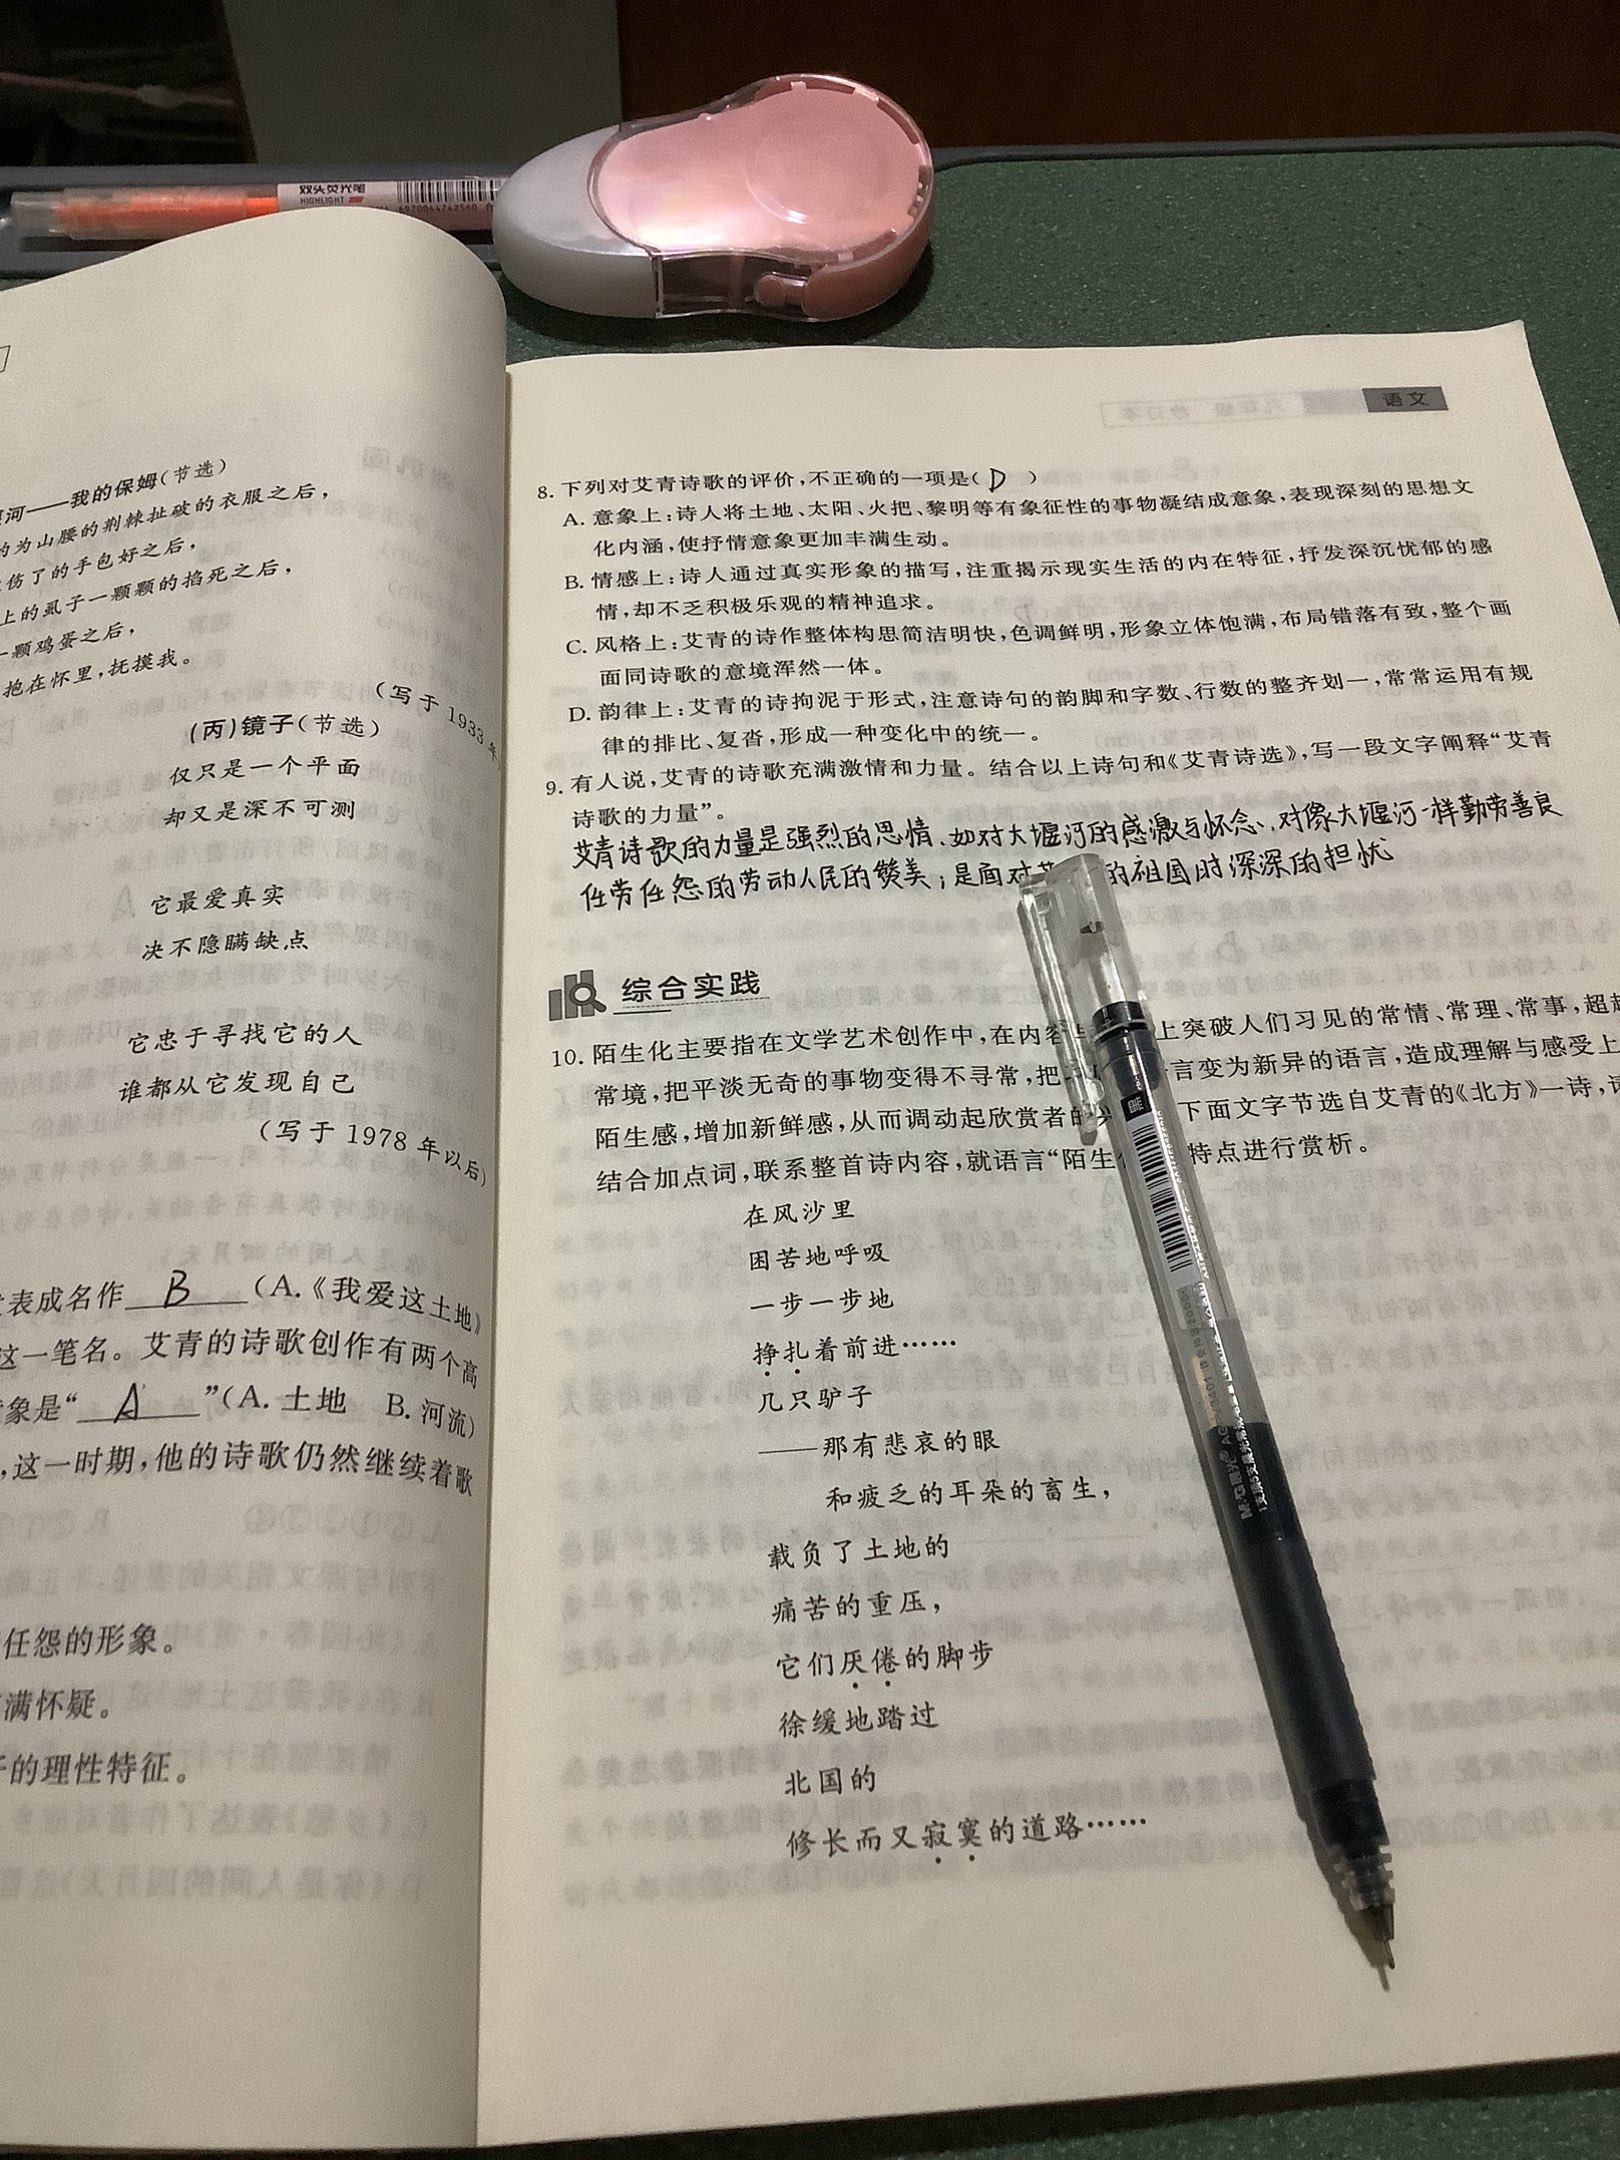 双头荧光笔
HIGHLIGHT
6970064742560
河——我的保姆(节选)
的为山腰的荆棘扯破的衣服之后，
伤了的手包好之后，
上的虱子一颗颗的掐死之后，
一颗鸡蛋之后，
抱在怀里，抚摸我。
(写于1933年
(丙)镜子(节选)
仅只是一个平面
却又是深不可测
它最爱真实
决不隐瞒缺点
它忠于寻找它的人
谁都从它发现自己
(写于1978年以后)
表成名作 B (A.《我爱这土地》
这一笔名。艾青的诗歌创作有两个高
象是“ A ”(A. 土地 B. 河流)
，这一时期，他的诗歌仍然继续着歌
任怨的形象。
满怀疑。
的理性特征。
语文
8. 下列对艾青诗歌的评价，不正确的一项是( D )
A. 意象上：诗人将土地、太阳、火把、黎明等有象征性的事物凝结成意象，表现深刻的思想文
化内涵，使抒情意象更加丰满生动。
B. 情感上：诗人通过真实形象的描写，注重揭示现实生活的内在特征，抒发深沉忧郁的感
情，却不乏积极乐观的精神追求。
C. 风格上：艾青的诗作整体构思简洁明快，色调鲜明，形象立体饱满，布局错落有致，整个画
面同诗歌的意境浑然一体。
D. 韵律上：艾青的诗拘泥于形式，注意诗句的韵脚和字数、行数的整齐划一，常常运用有规
律的排比、复沓，形成一种变化中的统一。
9. 有人说，艾青的诗歌充满激情和力量。结合以上诗句和《艾青诗选》，写一段文字阐释“艾青
诗歌的力量”。
艾青诗歌的力量是强烈的思情、如对大堰河的感激与怀念、对像大堰河一样勤劳善良
任劳任怨的劳动人民的赞美；是面对 的祖国时深深的担忧
综合实践
10. 陌生化主要指在文学艺术创作中，在内容 上突破人们习见的常情、常理、常事，超越
常境，把平淡无奇的事物变得不寻常，把 言变为新异的语言，造成理解与感受上
陌生感，增加新鲜感，从而调动起欣赏者的 下面文字节选自艾青的《北方》一诗，请
结合加点词，联系整首诗内容，就语言“陌生 特点进行赏析。
在风沙里
困苦地呼吸
一步一步地
挣扎着前进……
几只驴子
——那有悲哀的眼
和疲乏的耳朵的畜生，
载负了土地的
痛苦的重压，
它们厌倦的脚步
徐缓地踏过
北国的
修长而又寂寞的道路……
黑
M&G晨光